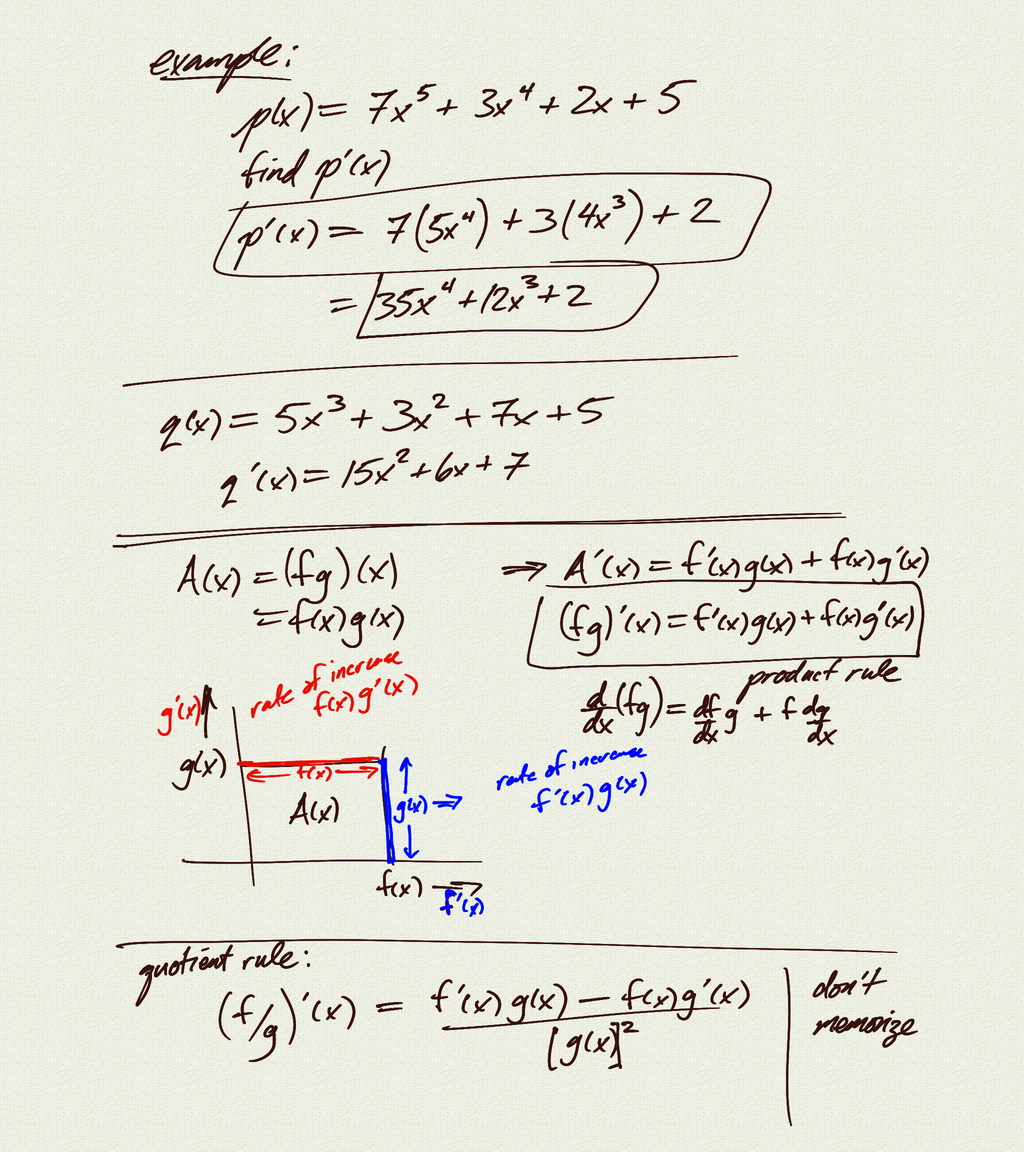 example:
p(x) = 7x⁵ + 3x⁴ + 2x + 5
find p'(x)
p'(x) = 7(5x⁴) + 3(4x³) + 2
= 35x⁴ + 12x³ + 2
q(x) = 5x³ + 3x² + 7x + 5
q'(x) = 15x² + 6x + 7
A(x) = (fg)(x)
= f(x)g(x)
⇒ A'(x) = f'(x)g(x) + f(x)g'(x)
(fg)'(x) = f'(x)g(x) + f(x)g'(x)
product rule
d/dx (fg) = df/dx g + f dg/dx
rate of increase
f(x)g'(x)
g'(x)
g(x)
← f(x) →
A(x)
g(x) ⇒
rate of increase
f'(x)g(x)
f(x) →
f'(x)
quotient rule:
(f/g)'(x) = f'(x)g(x) − f(x)g'(x)
[g(x)]²
don't
memorize